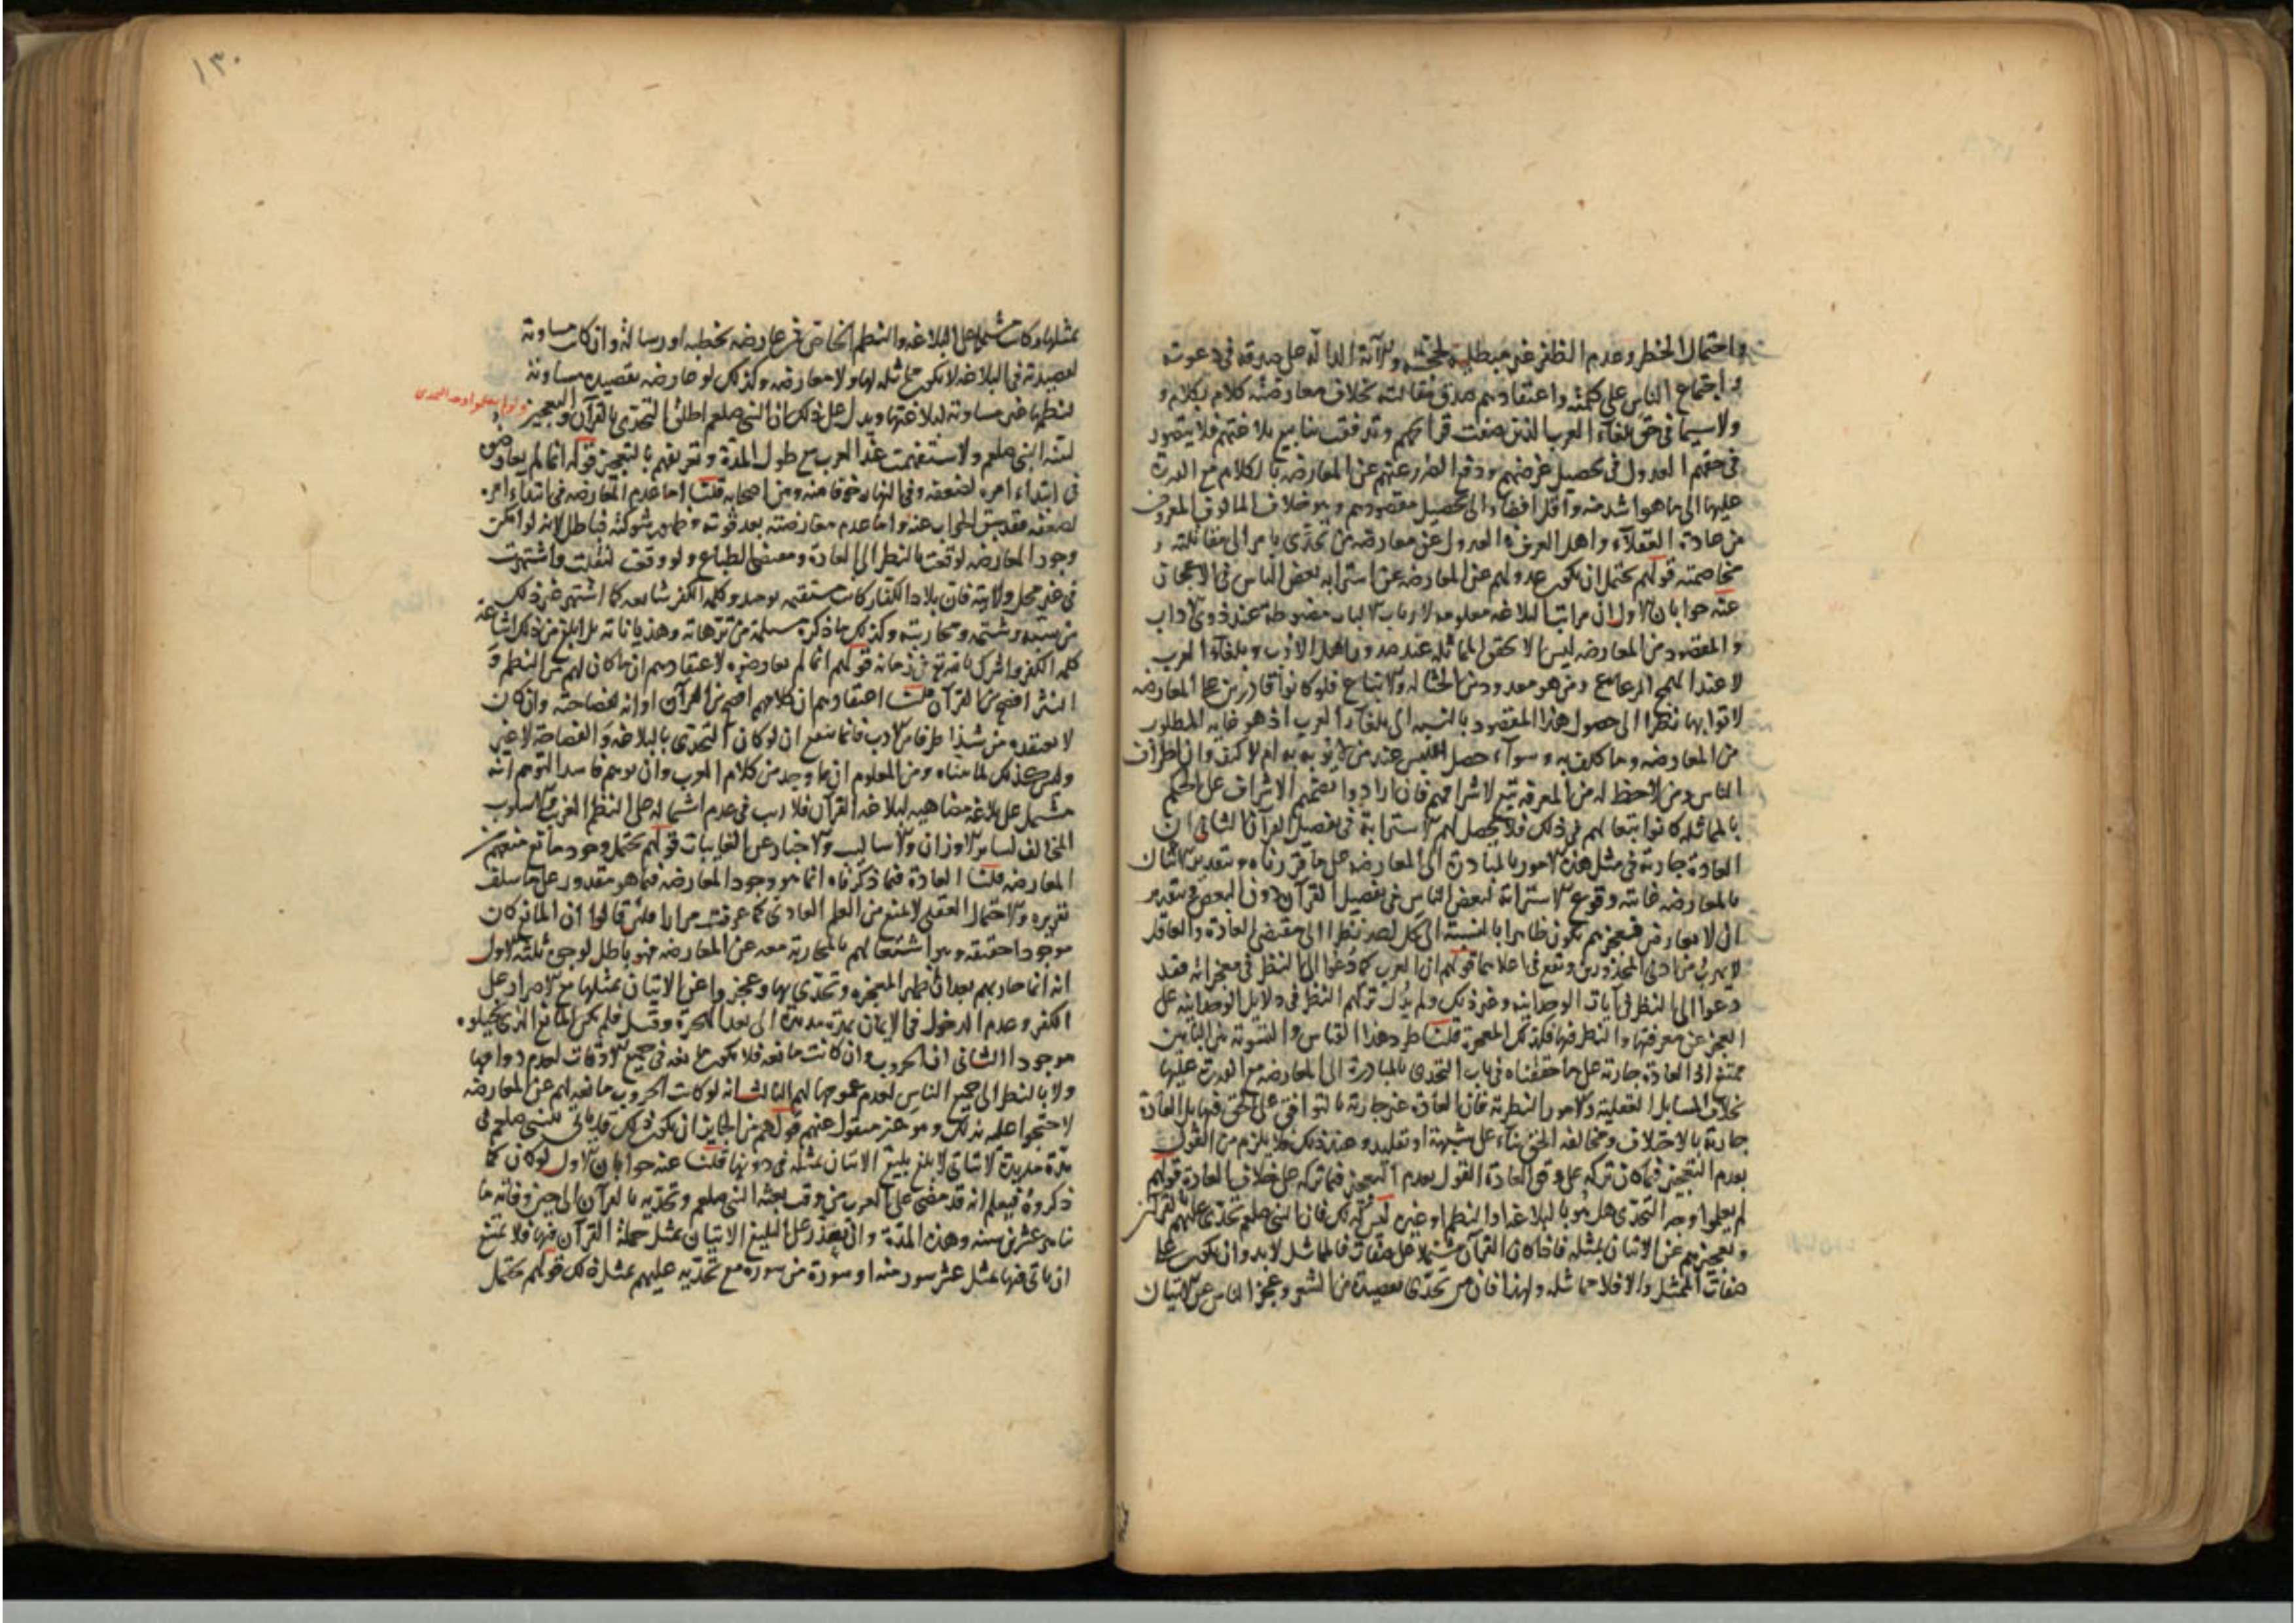 واحتمال الخطر وعدم الظفر غير مبطلة لحجته ولآية الدالة على صدقه في دعوته
واجتماع الناس على كلمته واعتقادهم صدق مقالته بخلاف معارضة كلام بكلام و
ولا سيما في حق بلغاء العرب الذين صفت قرائحهم وتدفقت ينابيع بلاغتهم فلا يتصور
في حقهم العدول في تحصيل غرضهم ودفع الضرر عنهم عن المعارضة بالكلام مع القدرة
عليها الى ما هو اشد منه واقل افضاء الى تحصيل مقصودهم وهو خلاف المألوف المعروف
من عادة العقلاء واهل العرف العدول عن معارضة من تحدى بامر الى مقاتلته و
مخاصمته قولهم يحتمل ان يكون عدولهم عن المعارضة عن استرابة بعض الناس في الاعجاز
عنه جوابان الاول ان مراتب البلاغة معلومة لارباب الالباب مضبوطة عند ذوي الآداب
والمقصود من المعارضة ليس الا تحقق المماثلة عند صدور اهل الادب وبلغاء العرب
لا عند الهمج الرعاع ومن هو معدود من الحثالة والاتباع فلو كانوا قادرين على المعارضة
لاتوا بها نظرا الى حصول هذا المقصود بالنسبة الى بلغاء العرب اذ هو غاية المطلوب
من المعارضة وما كلف به وسواء حصل اللبس عند من لا يؤبه به ام لا كيف وان اطراف
الناس ومن لا حظ له من المعرفة تبع لاشرافهم فان ارادوا بعضهم الاشراف على الحكم
بالمماثلة كانوا تبعا لهم في ذلك فلا يحصل لهم الاسترابة في تفصيل القرآن الثاني ان
العادة جارية في مثل هذه الامور بالمبادرة الى المعارضة على ما قررناه وبتقدير الاتيان
بالمعارضة غايته وقوع الاسترابة لبعض الناس في تفصيل القرآن دون البعض وبتقدير
ان لا يعارض فعجزهم يكون ظاهرا بالنسبة الى كل احد نظرا الى مقتضى العادة والعاقل
لا يهرب من ادنى المحذورين ويقع في اعلاهما قولهم ان العرب كما دعوا الى النظر في معجزاته فقد
دعوا الى النظر في آيات الوحدانية وغير ذلك ولم يدل تركهم النظر في دلايل الوحدانية على
العجز عن معرفتها والنظر فيها فكذلك المعجزة قلنا طرد هذا القياس والتسوية بين البابين
ممتنع اذ العادة جارية على ما حققناه في باب التحدي بالمبادرة الى المعارضة مع القدرة عليها
بخلاف المسايل العقلية والامور النظرية فان العادة غير جارية بالتوافق على الحق فيها بل العادة
جارية بالاختلاف ومخالفة الحق بناء على شبهة او تقليد وعند ذلك فلا يلزم من القول
بعدم التعجيز فيما كان تركه على وفق العادة القول بعدم التعجيز فيما تركه على خلاف العادة قولهم
لم يعلموا وجه التحدي هل هو بالبلاغة او النظم او غيره ليس كذلك فان النبي صلعم تحدى عليهم بالقرآن
وتعجيزهم عن الاتيان بمثله فاذا كان القرآن مشتملا على صفات فالمماثل لا بد وان يكون على
صفات الممثل والا فلا مماثلة ولهذا فان من تحدى بقصيدة من الشعر وعجز الناس عن الاتيان
١٣٠
بمثلها وكانت مشتملة على البلاغة والنظم الخاص فمن عارضه بخطبة او رسالة وان كانت مساوية
لقصيدته في البلاغة لا يكون مماثلة لها ولا معارضة وكذلك لو عارضه بقصيدة مساوية
لنظمها غير مساوية لبلاغتها ويدل على ذلك ان النبي صلعم اطلق التحدي بالقرآن والتعجيز
ولو لم يعلموا وجه التحدي
النبي صلعم ولاستفهمت عنه العرب مع طول المدة وتقريعهم بالتعجيز قوله انما لم يعارضوه
في ابتداء امره لضعفه وفي انتهائه خوفا منه ومن اصحابه قلنا اما عدم المعارضة في ابتداء امره
لضعفه فقد سبق الجواب عنه واما عدم معارضته بعد قوته وظهور شوكته فباطل لانه لو امكن
وجود المعارضة لوقعت بالنظر الى العادة ومقتضى الطباع ولو وقعت لنقلت واشتهرت
في غير محل ولايته فان بلاد الكفار كانت متسعة وكلمة الكفر شايعة كما اشتهر غير ذلك
من سبه وشتمه ومحاربته وكذلك ما ذكره مسيلمة من ترهاته وهذياناته بل ابلغ من ذلك اشاعة
كلمة الكفر والشرك بالله في زمانه قولهم انما لم يعارضوه لاعتقادهم ان ما كان لهم من النظم و
النثر افصح من القرآن قلنا اعتقادهم ان كلامهم افصح من القرآن او انه لفصاحته وان كان
لا يعتقده من شدا طرفا من الادب فانما ينفع ان لو كان التحدي بالبلاغة والفصاحة لا غير
وليس كذلك لما بيناه ومن المعلوم ان ما وجد من كلام العرب وان توهم فاسد التوهم انه
مشتمل على بلاغة مضاهية لبلاغة القرآن فلا ريب في عدم اشتماله على النظم الغريب والاسلوب
المخالف لساير الاوزان والاساليب والاخبار عن الغايبات قولهم يحتمل وجود مانع منعهم من
المعارضة قلنا العادة فيما ذكرناه انما هو وجود المعارضة فيما هو مقدور على ما سلف
تقريره والاحتمال العقلي لا يمنع من العلم العادي كما عرفت مرارا فلئن قالوا ان المانع كان
موجودا حقيقة وهو اشتغالهم بالمحاربة معه عن المعارضة فهو باطل لوجوه ثلثة الاول
انه انما حاربهم بعد ان ظهر المعجزة وتحدى بها وعجزوا عن الاتيان بمثلها مع الاصرار على
الكفر وعدم الدخول في الايمان بمدة مديدة الى بعد الهجرة وقبل فلم يكن المانع الذي تخيلوه
موجودا الثاني ان الحروب وان كانت مانعة فلا تكون مانعة في جميع الاوقات لعدم دوامها
ولا بالنظر الى جميع الناس لعدم عمومها لهم الثالث انه لو كانت الحروب مانعة لهم عن المعارضة
لاحتجوا عليه بذلك وهو غير منقول عنهم قولهم من الجايز ان يكون ذلك قد تأتى للنبي صلعم في
مدة مديدة لا يتأتى لابلغ بليغ الاتيان بمثله في دونها قلنا عنه جوابان الاول لو كان كما
ذكروه فيعلم انه قد مضى على العرب من وقت بعثه النبي صلعم وتحديه بالقرآن الى حين وفاته ما
ناهز عشرين سنة وهذه المدة وان تعذر على البليغ الاتيان بمثل جملة القرآن فيها فلا يمتنع
ان ياتى فيها بمثل عشر سور منه او سورة من سوره مع تحديه عليهم بمثل ذلك قولهم يحتمل